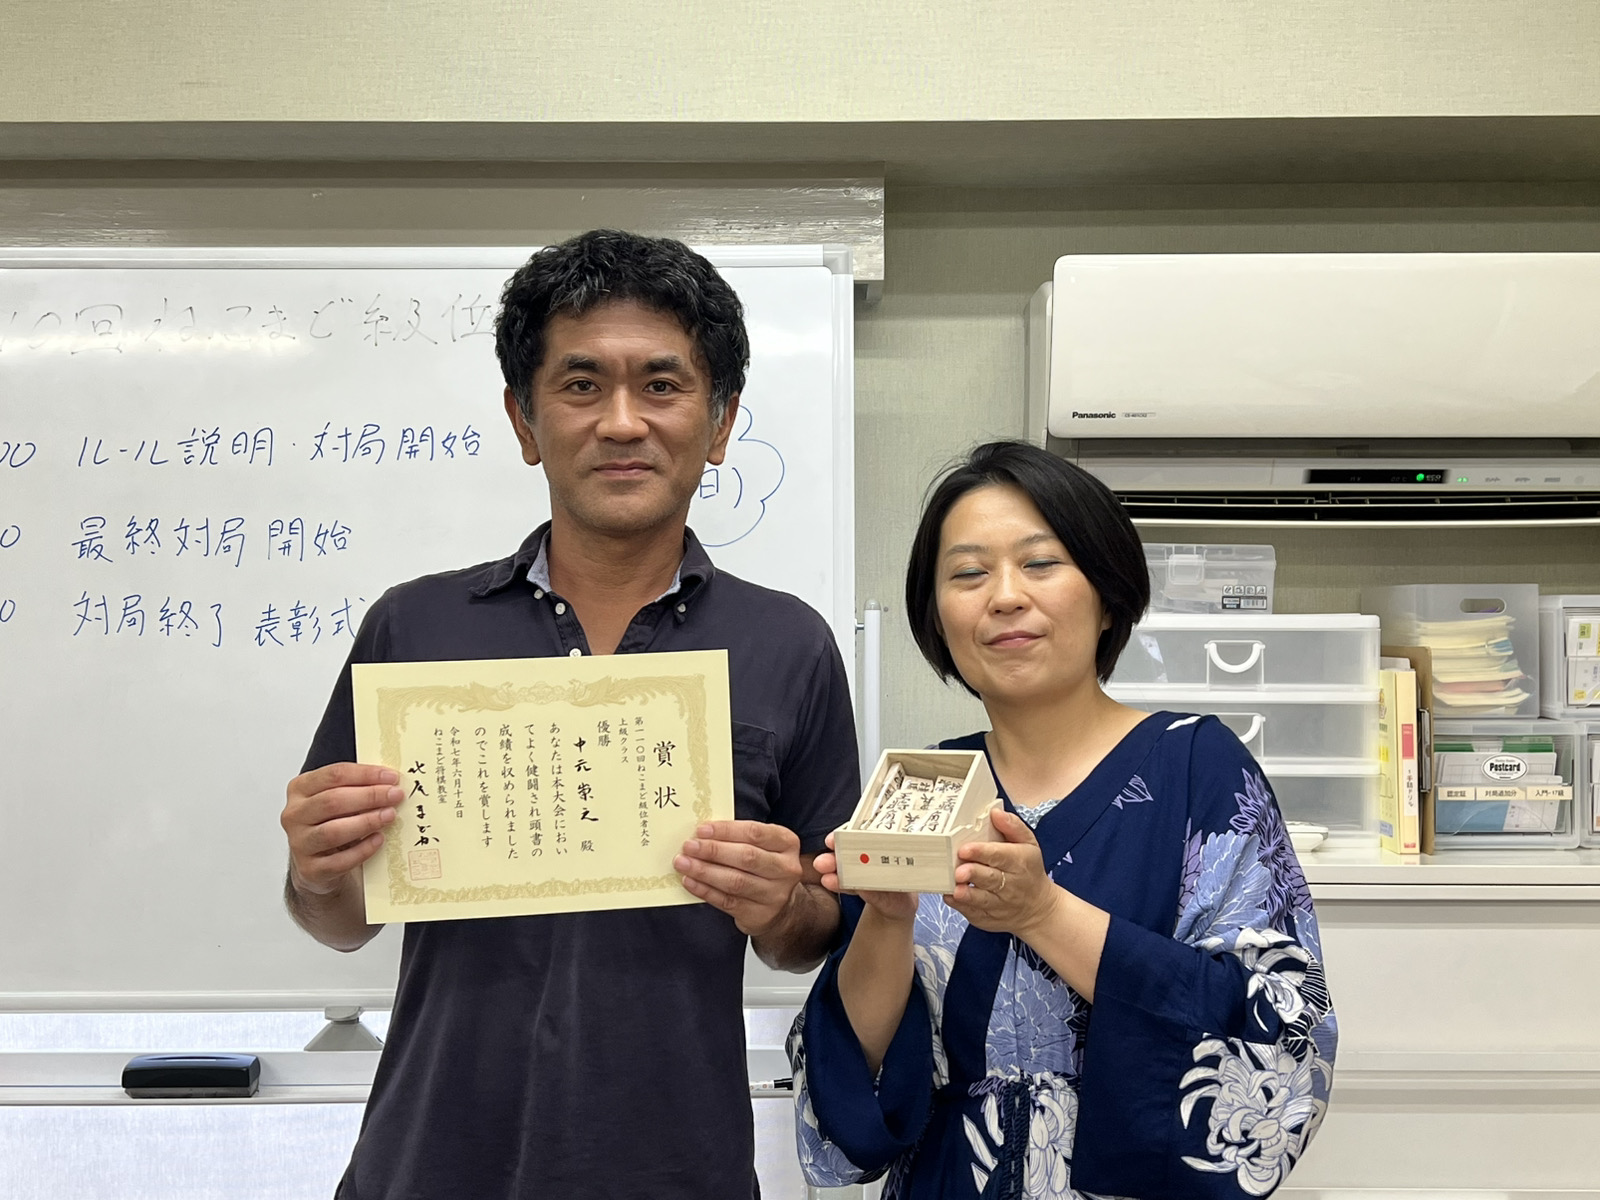 10回ねこまど級位
00 ルール説明・対局開始
0 最終対局開始
0 対局終了 表彰式
日)
賞状
第一一〇回ねこまど級位者大会
上級クラス
優勝
中元崇之 殿
あなたは本大会におい
てよく健闘され頭書の
成績を収められました
のでこれを賞します
令和七年六月十五日
ねこまど将棋教室
北尾まどか
Panasonic
eco
Postcard
認定証
対局追加分
入門~17級
1手詰ドリル